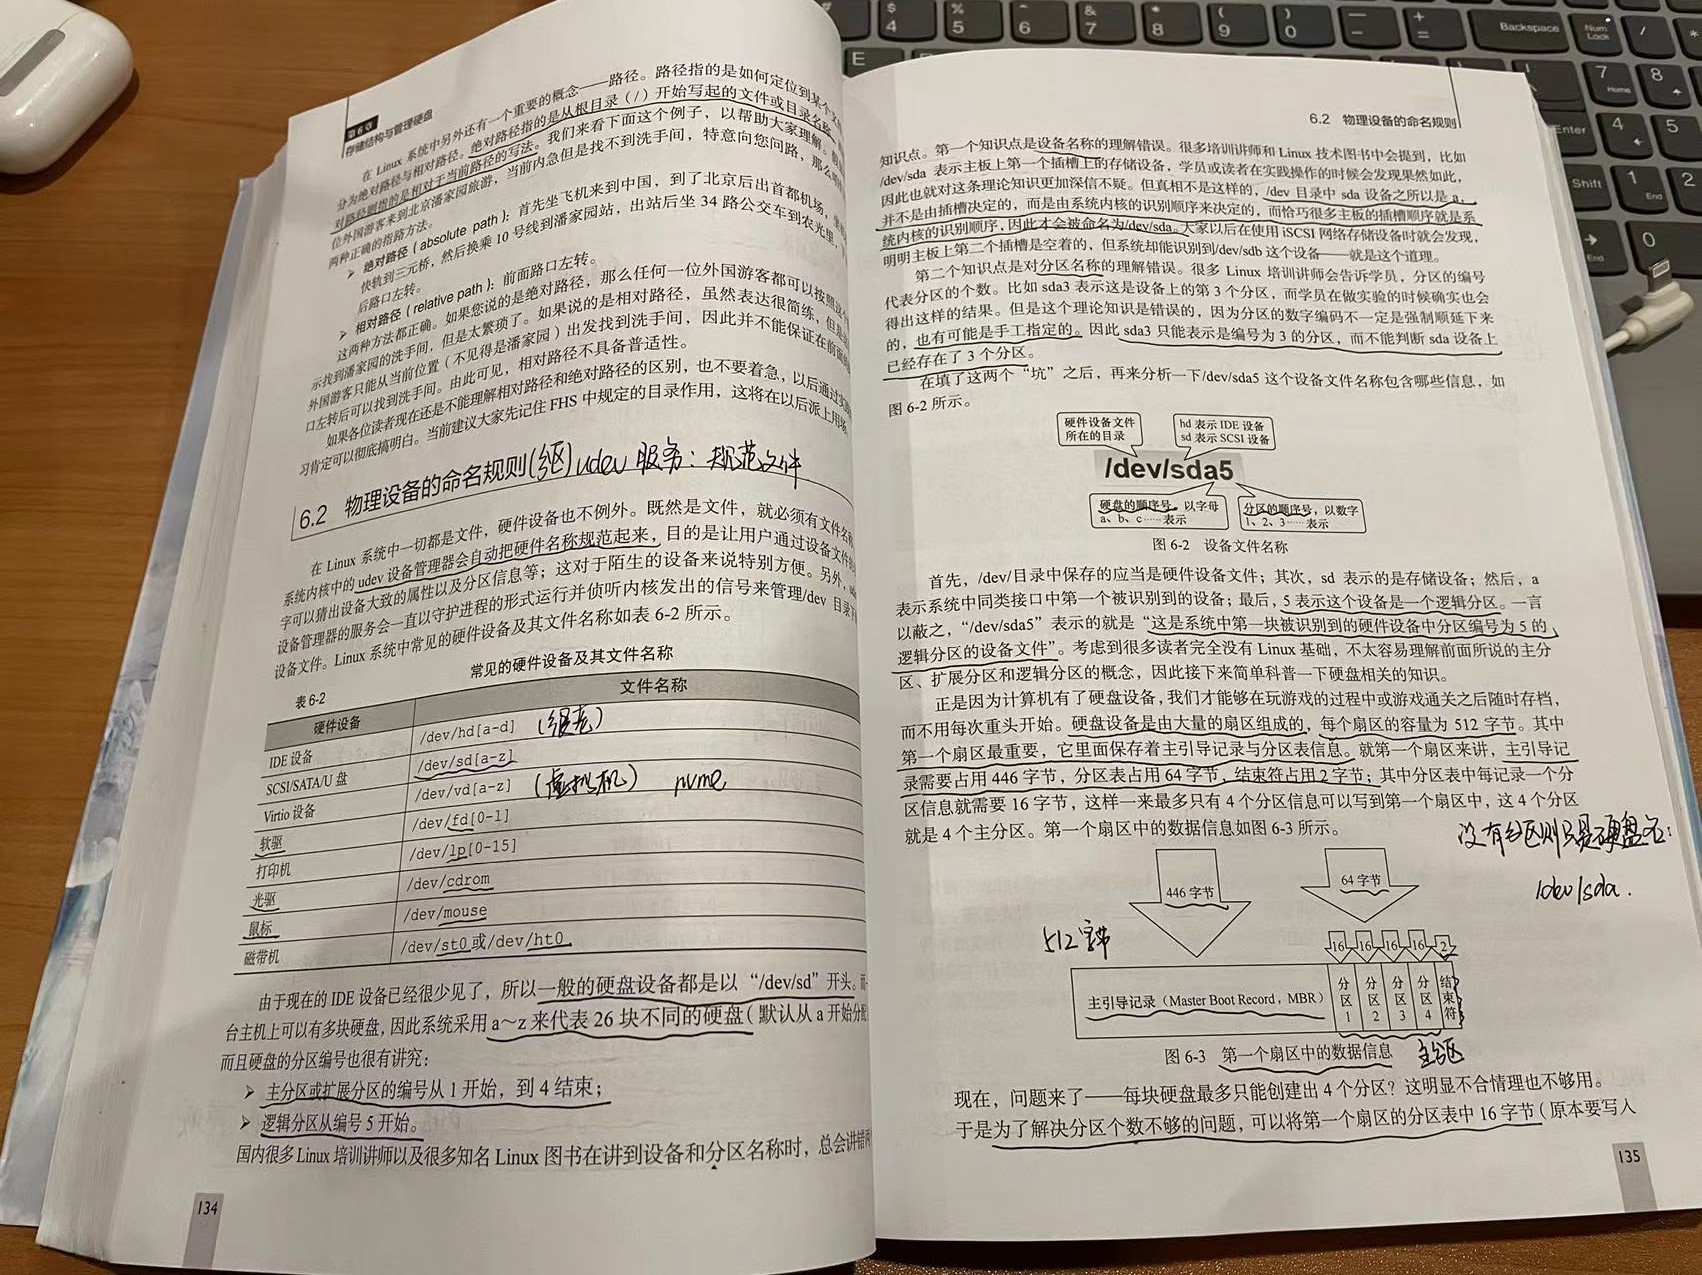 第6章
存储结构与管理硬盘
在 Linux 系统中另外还有一个重要的概念——路径。路径指的是如何定位到某个文
分为绝对路径与相对路径。绝对路径指的是从根目录（/）开始写起的文件或目录名称
对路径则指的是相对于当前路径的写法。我们来看下面这个例子，以帮助大家理解。
位外国游客来到北京潘家园旅游，当前内急但是找不到洗手间，特意向您问路，那么
两种正确的指路方法。
➢ 绝对路径（absolute path）：首先坐飞机来到中国，到了北京后出首都机场，坐
快轨到三元桥，然后换乘 10 号线到潘家园站，出站后坐 34 路公交车到农光里，
后路口左转。
➢ 相对路径（relative path）：前面路口左转。
这两种方法都正确。如果您说的是绝对路径，那么任何一位外国游客都可以按照这
示找到潘家园的洗手间，但是太繁琐了。如果说的是相对路径，虽然表达很简练，但是
外国游客只能从当前位置（不见得是潘家园）出发找到洗手间，因此并不能保证在前面
口左转后可以找到洗手间。由此可见，相对路径不具备普适性。
如果各位读者现在还是不能理解相对路径和绝对路径的区别，也不要着急，以后通过实
习肯定可以彻底搞明白。当前建议大家先记住 FHS 中规定的目录作用，这将在以后派上用场
6.2 物理设备的命名规则 udev 服务：规范文件
在 Linux 系统中一切都是文件，硬件设备也不例外。既然是文件，就必须有文件名称
系统内核中的 udev 设备管理器会自动把硬件名称规范起来，目的是让用户通过设备文件的
字可以猜出设备大致的属性以及分区信息等；这对于陌生的设备来说特别方便。另外，
设备管理器的服务会一直以守护进程的形式运行并侦听内核发出的信号来管理/dev 目录下
设备文件。Linux 系统中常见的硬件设备及其文件名称如表 6-2 所示。
表 6-2 常见的硬件设备及其文件名称
硬件设备 文件名称
IDE 设备 /dev/hd[a-d]
SCSI/SATA/U 盘 /dev/sd[a-z]
Virtio 设备 /dev/vd[a-z] (虚拟机) nvme
软驱 /dev/fd[0-1]
打印机 /dev/lp[0-15]
光驱 /dev/cdrom
鼠标 /dev/mouse
磁带机 /dev/st0 或/dev/ht0
由于现在的 IDE 设备已经很少见了，所以一般的硬盘设备都是以“/dev/sd”开头。而
台主机上可以有多块硬盘，因此系统采用 a～z 来代表 26 块不同的硬盘（默认从 a 开始分配
而且硬盘的分区编号也很有讲究：
➢ 主分区或扩展分区的编号从 1 开始，到 4 结束；
➢ 逻辑分区从编号 5 开始。
国内很多 Linux 培训讲师以及很多知名 Linux 图书在讲到设备和分区名称时，总会讲错两
134
6.2 物理设备的命名规则
知识点。第一个知识点是设备名称的理解错误。很多培训讲师和 Linux 技术图书中会提到，比如
/dev/sda 表示主板上第一个插槽上的存储设备，学员或读者在实践操作的时候会发现果然如此，
因此也就对这条理论知识更加深信不疑。但真相不是这样的，/dev 目录中 sda 设备之所以是 a，
并不是由插槽决定的，而是由系统内核的识别顺序来决定的，而恰巧很多主板的插槽顺序就是系
统内核的识别顺序，因此才会被命名为/dev/sda。大家以后在使用 iSCSI 网络存储设备时就会发现，
明明主板上第二个插槽是空着的，但系统却能识别到/dev/sdb 这个设备——就是这个道理。
第二个知识点是对分区名称的理解错误。很多 Linux 培训讲师会告诉学员，分区的编号
代表分区的个数。比如 sda3 表示这是设备上的第 3 个分区，而学员在做实验的时候确实也会
得出这样的结果。但是这个理论知识是错误的，因为分区的数字编码不一定是强制顺延下来
的，也有可能是手工指定的。因此 sda3 只能表示是编号为 3 的分区，而不能判断 sda 设备上
已经存在了 3 个分区。
在填了这两个“坑”之后，再来分析一下/dev/sda5 这个设备文件名称包含哪些信息，如
图 6-2 所示。
硬件设备文件
所在的目录
hd 表示 IDE 设备
sd 表示 SCSI 设备
/dev/sda5
硬盘的顺序号，以字母
a、b、c……表示
分区的顺序号，以数字
1、2、3……表示
图 6-2 设备文件名称
首先，/dev/目录中保存的应当是硬件设备文件；其次，sd 表示的是存储设备；然后，a
表示系统中同类接口中第一个被识别到的设备；最后，5 表示这个设备是一个逻辑分区。一言
以蔽之，“/dev/sda5”表示的就是“这是系统中第一块被识别到的硬件设备中分区编号为 5 的
逻辑分区的设备文件”。考虑到很多读者完全没有 Linux 基础，不太容易理解前面所说的主分
区、扩展分区和逻辑分区的概念，因此接下来简单科普一下硬盘相关的知识。
正是因为计算机有了硬盘设备，我们才能够在玩游戏的过程中或游戏通关之后随时存档，
而不用每次重头开始。硬盘设备是由大量的扇区组成的，每个扇区的容量为 512 字节。其中
第一个扇区最重要，它里面保存着主引导记录与分区表信息。就第一个扇区来讲，主引导记
录需要占用 446 字节，分区表占用 64 字节，结束符占用 2 字节；其中分区表中每记录一个分
区信息就需要 16 字节，这样一来最多只有 4 个分区信息可以写到第一个扇区中，这 4 个分区
就是 4 个主分区。第一个扇区中的数据信息如图 6-3 所示。
没有分区则只是硬盘名：
/dev/sda.
446 字节
64 字节
512字节
16 16 16 16 2
主引导记录（Master Boot Record，MBR）
分区1
分区2
分区3
分区4
结束符
图 6-3 第一个扇区中的数据信息 主分区
现在，问题来了——每块硬盘最多只能创建出 4 个分区？这明显不合情理也不够用。
于是为了解决分区个数不够的问题，可以将第一个扇区的分区表中 16 字节（原本要写入
135
$
4
%
5
6
&
7
*
8
(
9
)
0
+
=
Backspace
Num
Lock
/
*
E
7
Home
8
Enter
4
5
Shift
1
End
2
0
Ins